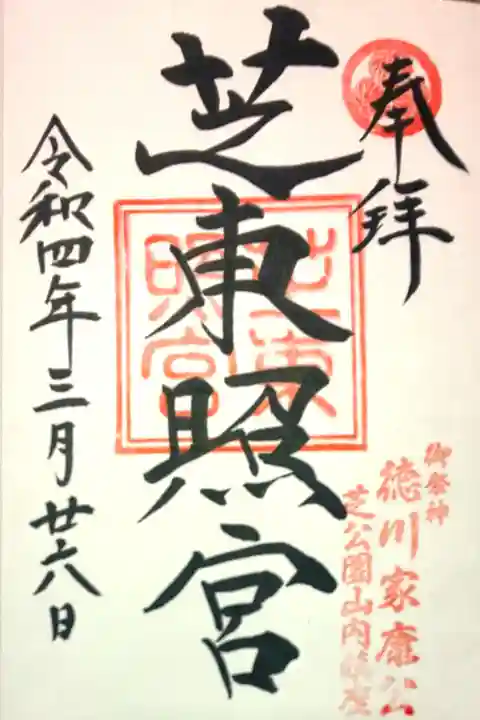 奉拝
芝東照宮
令和四年三月廿六日
御祭神
徳川家康公
芝公園山内鎮座
芝東照宮